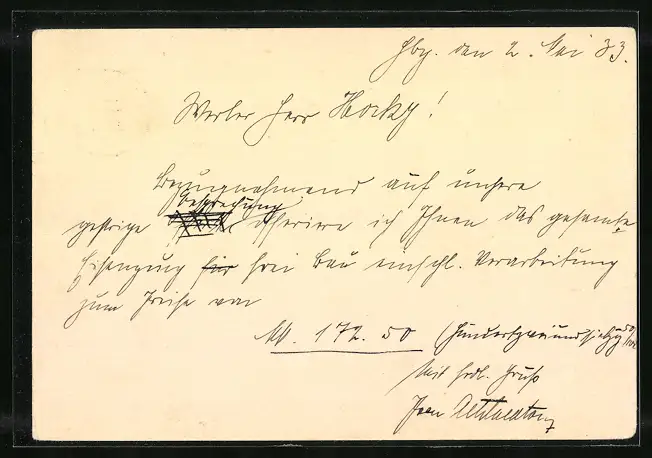 Hbg. den 2. Mai 33.
Werter Herr Hocky!
Bezugnehmend auf unsere
Besprechung
gestrige offeriere ich Ihnen das gesamte
Eisenzeug für frei Bau einschl. Verarbeitung
zum Preise von
M. 172.50 (Hundertzweiundsiebzig 50/100
Mit frdl. Gruß